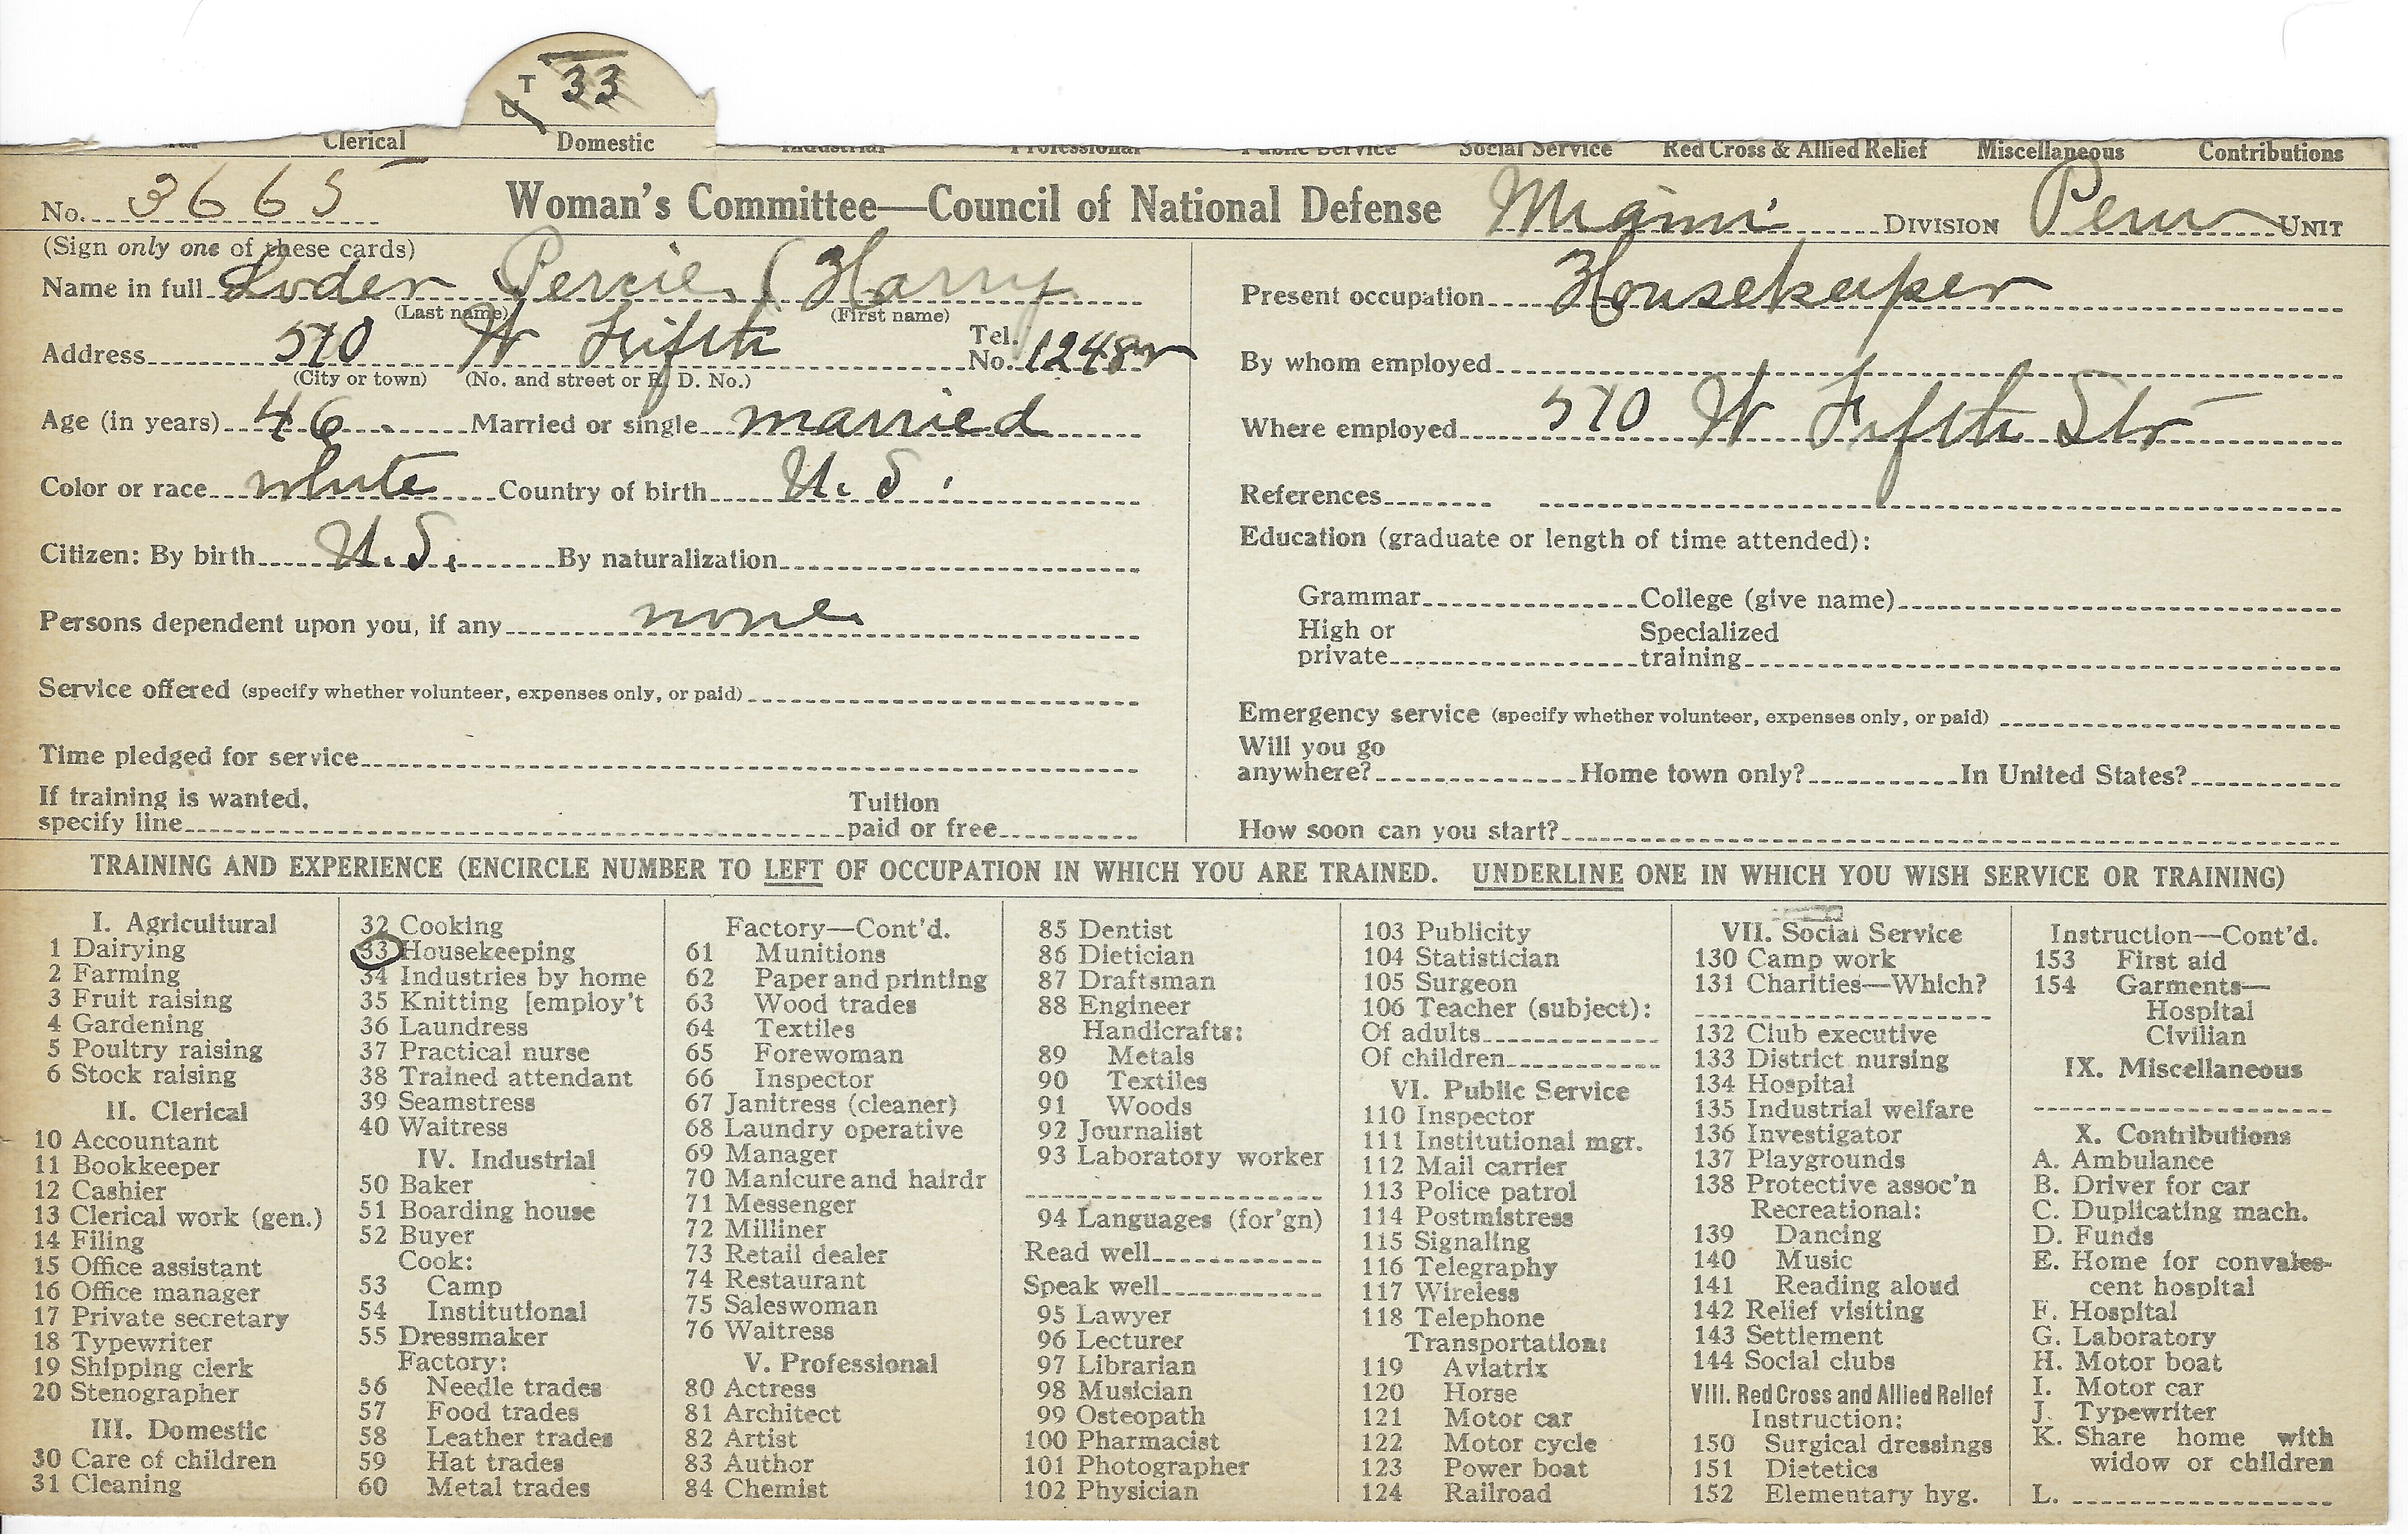 T 33
U
Clerical Domestic Industrial Professional Public Service Social Service Red Cross & Allied Relief Miscellaneous Contributions
No. 3665 Woman's Committee—Council of National Defense Miami DIVISION Peru UNIT
(Sign only one of these cards)
Name in full Loder Percie (Harry
(Last name) (First name)
Address 570 W Fifth Tel. No. 1248
(City or town) (No. and street or R. D. No.)
Age (in years) 46 Married or single married
Color or race white Country of birth U. S.
Citizen: By birth U. S. By naturalization
Persons dependent upon you, if any none
Service offered (specify whether volunteer, expenses only, or paid)
Time pledged for service
If training is wanted, specify line Tuition paid or free
Present occupation Housekeeper
By whom employed
Where employed 570 W Fifth Str
References
Education (graduate or length of time attended):
Grammar College (give name)
High or private Specialized training
Emergency service (specify whether volunteer, expenses only, or paid)
Will you go anywhere? Home town only? In United States?
How soon can you start?
TRAINING AND EXPERIENCE (ENCIRCLE NUMBER TO LEFT OF OCCUPATION IN WHICH YOU ARE TRAINED. UNDERLINE ONE IN WHICH YOU WISH SERVICE OR TRAINING)
I. Agricultural
1 Dairying
2 Farming
3 Fruit raising
4 Gardening
5 Poultry raising
6 Stock raising
II. Clerical
10 Accountant
11 Bookkeeper
12 Cashier
13 Clerical work (gen.)
14 Filing
15 Office assistant
16 Office manager
17 Private secretary
18 Typewriter
19 Shipping clerk
20 Stenographer
III. Domestic
30 Care of children
31 Cleaning
32 Cooking
33 Housekeeping
34 Industries by home
35 Knitting [employ't
36 Laundress
37 Practical nurse
38 Trained attendant
39 Seamstress
40 Waitress
IV. Industrial
50 Baker
51 Boarding house
52 Buyer
Cook:
53 Camp
54 Institutional
55 Dressmaker
Factory:
56 Needle trades
57 Food trades
58 Leather trades
59 Hat trades
60 Metal trades
Factory—Cont'd.
61 Munitions
62 Paper and printing
63 Wood trades
64 Textiles
65 Forewoman
66 Inspector
67 Janitress (cleaner)
68 Laundry operative
69 Manager
70 Manicure and hairdr
71 Messenger
72 Milliner
73 Retail dealer
74 Restaurant
75 Saleswoman
76 Waitress
V. Professional
80 Actress
81 Architect
82 Artist
83 Author
84 Chemist
85 Dentist
86 Dietician
87 Draftsman
88 Engineer
Handicrafts:
89 Metals
90 Textiles
91 Woods
92 Journalist
93 Laboratory worker
94 Languages (for'gn)
Read well
Speak well
95 Lawyer
96 Lecturer
97 Librarian
98 Musician
99 Osteopath
100 Pharmacist
101 Photographer
102 Physician
103 Publicity
104 Statistician
105 Surgeon
106 Teacher (subject):
Of adults
Of children
VI. Public Service
110 Inspector
111 Institutional mgr.
112 Mail carrier
113 Police patrol
114 Postmistress
115 Signaling
116 Telegraphy
117 Wireless
118 Telephone
Transportation:
119 Aviatrix
120 Horse
121 Motor car
122 Motor cycle
123 Power boat
124 Railroad
VII. Social Service
130 Camp work
131 Charities—Which?
132 Club executive
133 District nursing
134 Hospital
135 Industrial welfare
136 Investigator
137 Playgrounds
138 Protective assoc'n
Recreational:
139 Dancing
140 Music
141 Reading aloud
142 Relief visiting
143 Settlement
144 Social clubs
VIII. Red Cross and Allied Relief
Instruction:
150 Surgical dressings
151 Dietetics
152 Elementary hyg.
Instruction—Cont'd.
153 First aid
154 Garments—
Hospital
Civilian
IX. Miscellaneous
X. Contributions
A. Ambulance
B. Driver for car
C. Duplicating mach.
D. Funds
E. Home for convales-
cent hospital
F. Hospital
G. Laboratory
H. Motor boat
I. Motor car
J. Typewriter
K. Share home with
widow or children
L.